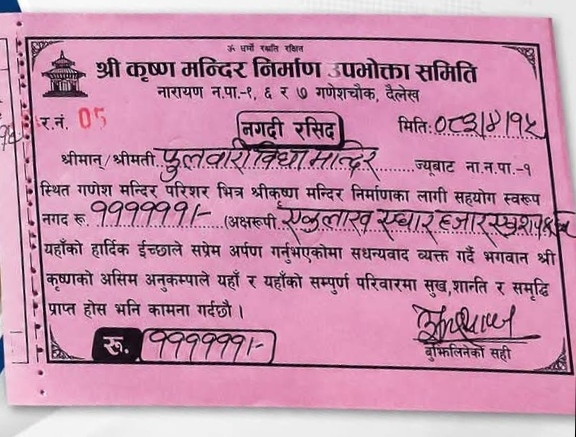 ॐ धर्मो रक्षति रक्षित
श्री कृष्ण मन्दिर निर्माण उपभोक्ता समिति
नारायण न.पा.-१, ६ र ७ गणेशचौक, दैलेख
र.नं. 05
मिति: ०८३/४/१५
नगदी रसिद
श्रीमान्/श्रीमती फुलवारी विद्या मन्दिर ज्यूबाट ना.न.पा.-१
स्थित गणेश मन्दिर परिशर भित्र श्रीकृष्ण मन्दिर निर्माणका लागी सहयोग स्वरूप
नगद रू. ११११११/- (अक्षरूपी एकलाख एघार हजार
यहाँको हार्दिक ईच्छाले सप्रेम अर्पण गर्नुभएकोमा सधन्यवाद व्यक्त गर्दै भगवान श्री
कृष्णको असिम अनुकम्पाले यहाँ र यहाँको सम्पुर्ण परिवारमा सुख, शान्ति र समृद्धि
प्राप्त होस भनि कामना गर्दछौ ।
रू. ११११११/-
बुझिलिनेको सही